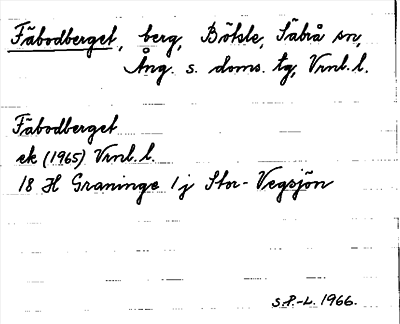 Fäbodberget, berg, Bölsle, Säbrå sn,
Ång. s. doms. tg, Vrnl. l.
Fäbodberget
ek (1965) Vrnl. l.
18 H Graninge 1 j Stor-Vegsjön
S.P.-L. 1966.